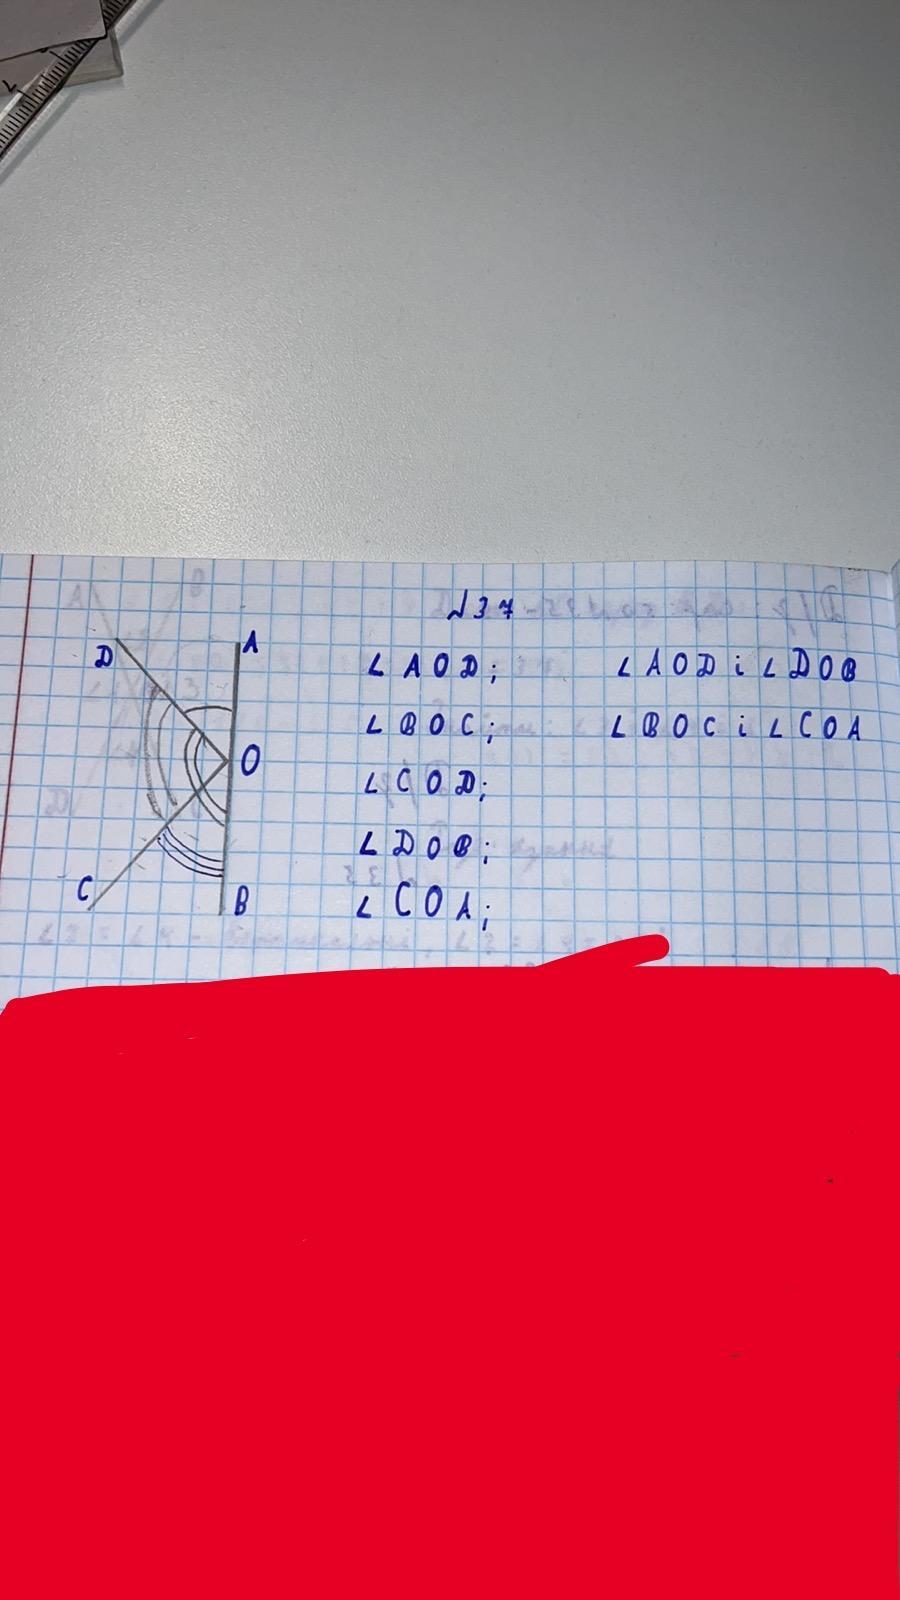 №37
D
A
O
C
B
∠AOD;
∠BOC;
∠COD;
∠DOB;
∠COA;
∠AOD i ∠DOB
∠BOC i ∠COA